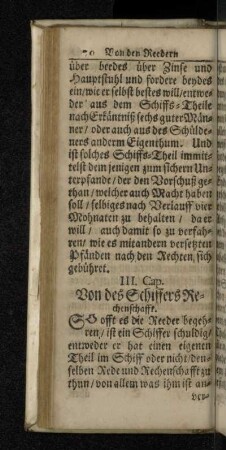 70 Von den Reedern
über berdes über Zinse und
Hauptstuhl und fordere beydes
ein/wie er selbst bestes will/entwe-
der aus dem Schiffs-Theile
nach Erkäntniß sechs guter Män-
ner/oder auch aus des Schülde-
ners anderm Eigenthum. Und
ist solches Schiffs-Theil immit-
telst dem jenigen zum sichern Un-
terpfande/der den Vorschuß ge-
than/welcher auch Macht haben
soll/selbiges nach Verlauff vier
Mohnaten zu behalten/da er
will/auch damit so zu verfah-
ren/wie es mit andern versetzten
Pfänden nach den Rechten sich
gebühret.
III. Cap.
Von des Schiffers Re-
chenschafft.
SO offt es die Reeder begeh-
ren/ist ein Schiffer schuldig
entweder er hat einen eigenen
Theil im Schiff oder nicht/den-
selben Rede und Rechenschafft zu
thun/von allem was ihm ist an-
ver-